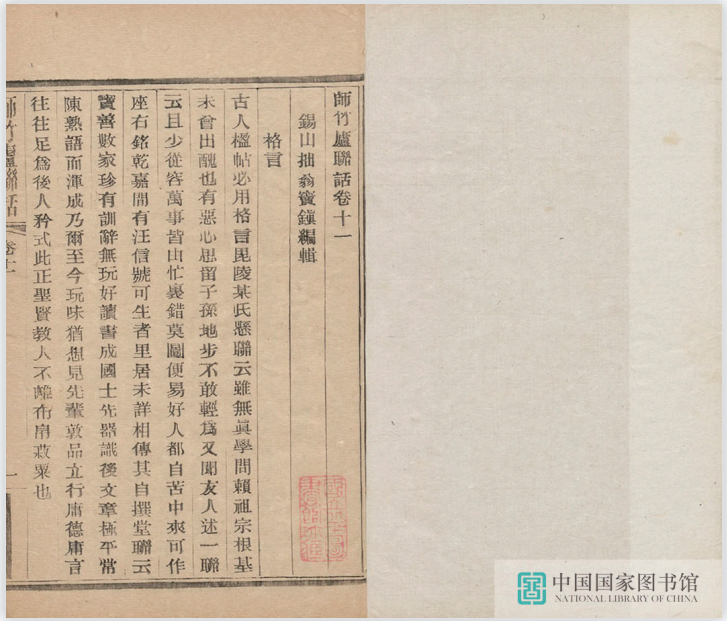 師竹廬聯話卷十一
錫山拙翁竇鎮編輯
格言
古人楹帖必用格言毘陵某氏懸聯云雖無眞學問賴祖宗根基
未會出醜也有惡心思留子孫地步不敢輕爲又聞友人述一聯
云且少從容萬事皆由忙裏錯莫圖便易好人都自苦中來可作
座右銘乾嘉間有汪信號可生者里居未詳相傳其自撰堂聯云
寶善數家珍有訓辭無玩好讀書成國士先器識後文章極平常
陳熟語而渾成乃爾至今玩味猶想見先輩敦品立行庸德庸言
往往足爲後人矜式此正聖賢教人不離布帛菽粟也
師竹廬聯話
卷十一
一
中国国家图书馆
NATIONAL LIBRARY OF CHINA